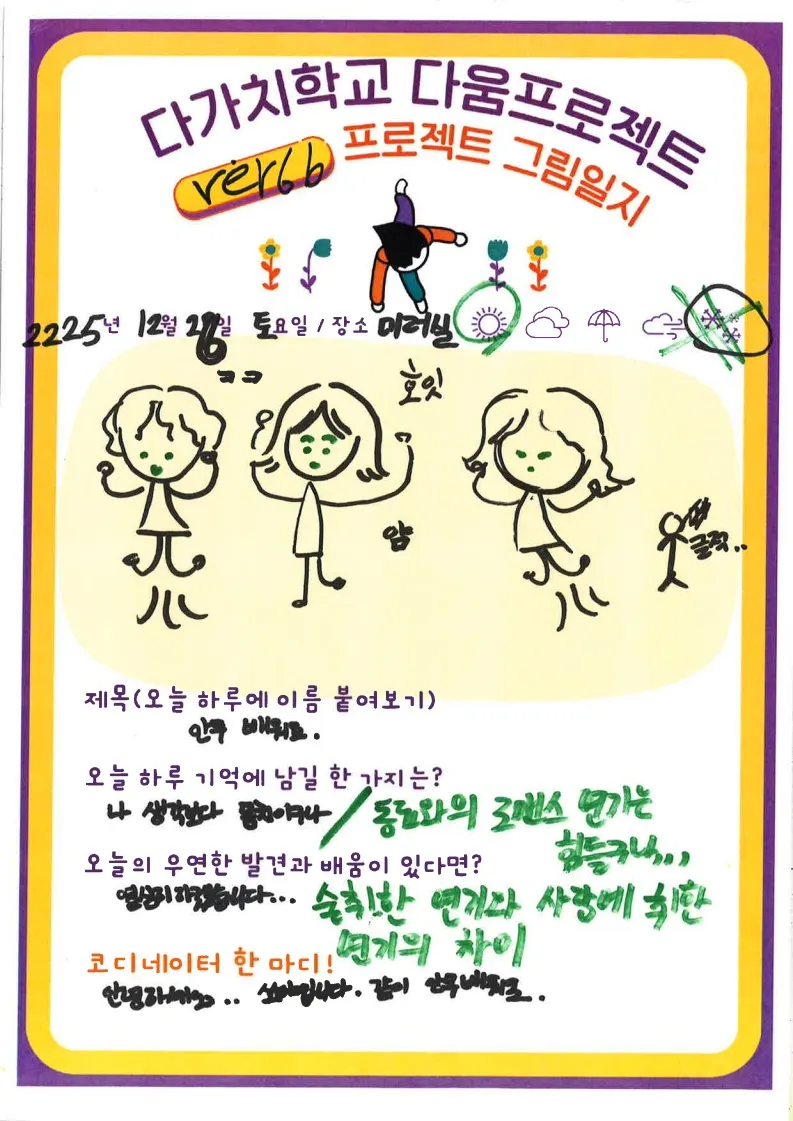 다가치학교 다움프로젝트
ver6b 프로젝트 그림일지
2225년 12월 28일 토요일 / 장소 미러실
ㅋㅋ
호잇
얍
글적..
제목(오늘 하루에 이름 붙여보기)
안무 배워료.
오늘 하루 기억에 남길 한 가지는?
나 생각보다 / 동료와의 로맨스 연기는
힘들구나...
오늘의 우연한 발견과 배움이 있다면?
열심히하겠습니다... 술취한 연기과 사랑에 취한
연기의 차이
코디네이터 한 마디!
안녕하세요.. 같이 안무배워료.